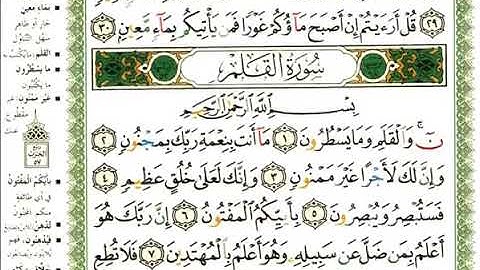 ٢٩ قُلْ أَرَءَيْتُمْ إِنْ أَصْبَحَ مَآؤُكُمْ غَوْرًا فَمَن يَأْتِيكُم بِمَآءٍ مَّعِينٍ ٣٠
سُورَةُ الْقَلَمِ
بِسْمِ اللَّهِ الرَّحْمَٰنِ الرَّحِيمِ
نٓ وَالْقَلَمِ وَمَا يَسْطُرُونَ ١ مَآ أَنتَ بِنِعْمَةِ رَبِّكَ بِمَجْنُونٍ ٢
وَإِنَّ لَكَ لَأَجْرًا غَيْرَ مَمْنُونٍ ٣ وَإِنَّكَ لَعَلَىٰ خُلُقٍ عَظِيمٍ ٤
فَسَتُبْصِرُ وَيُبْصِرُونَ ٥ بِأَييِّكُمُ الْمَفْتُونُ ٦ إِنَّ رَبَّكَ هُوَ
أَعْلَمُ بِمَن ضَلَّ عَن سَبِيلِهِ وَهُوَ أَعْلَمُ بِالْمُهْتَدِينَ ٧ فَلَا تُطِعِ
بماء معين
جار أو ظاهر
سهل التناول
القلم
ما يسطرون
ما يكتبون
غير ممنون غير
مقطوع
بأيكم المفتون
في أي طائفة
منكم المجنون